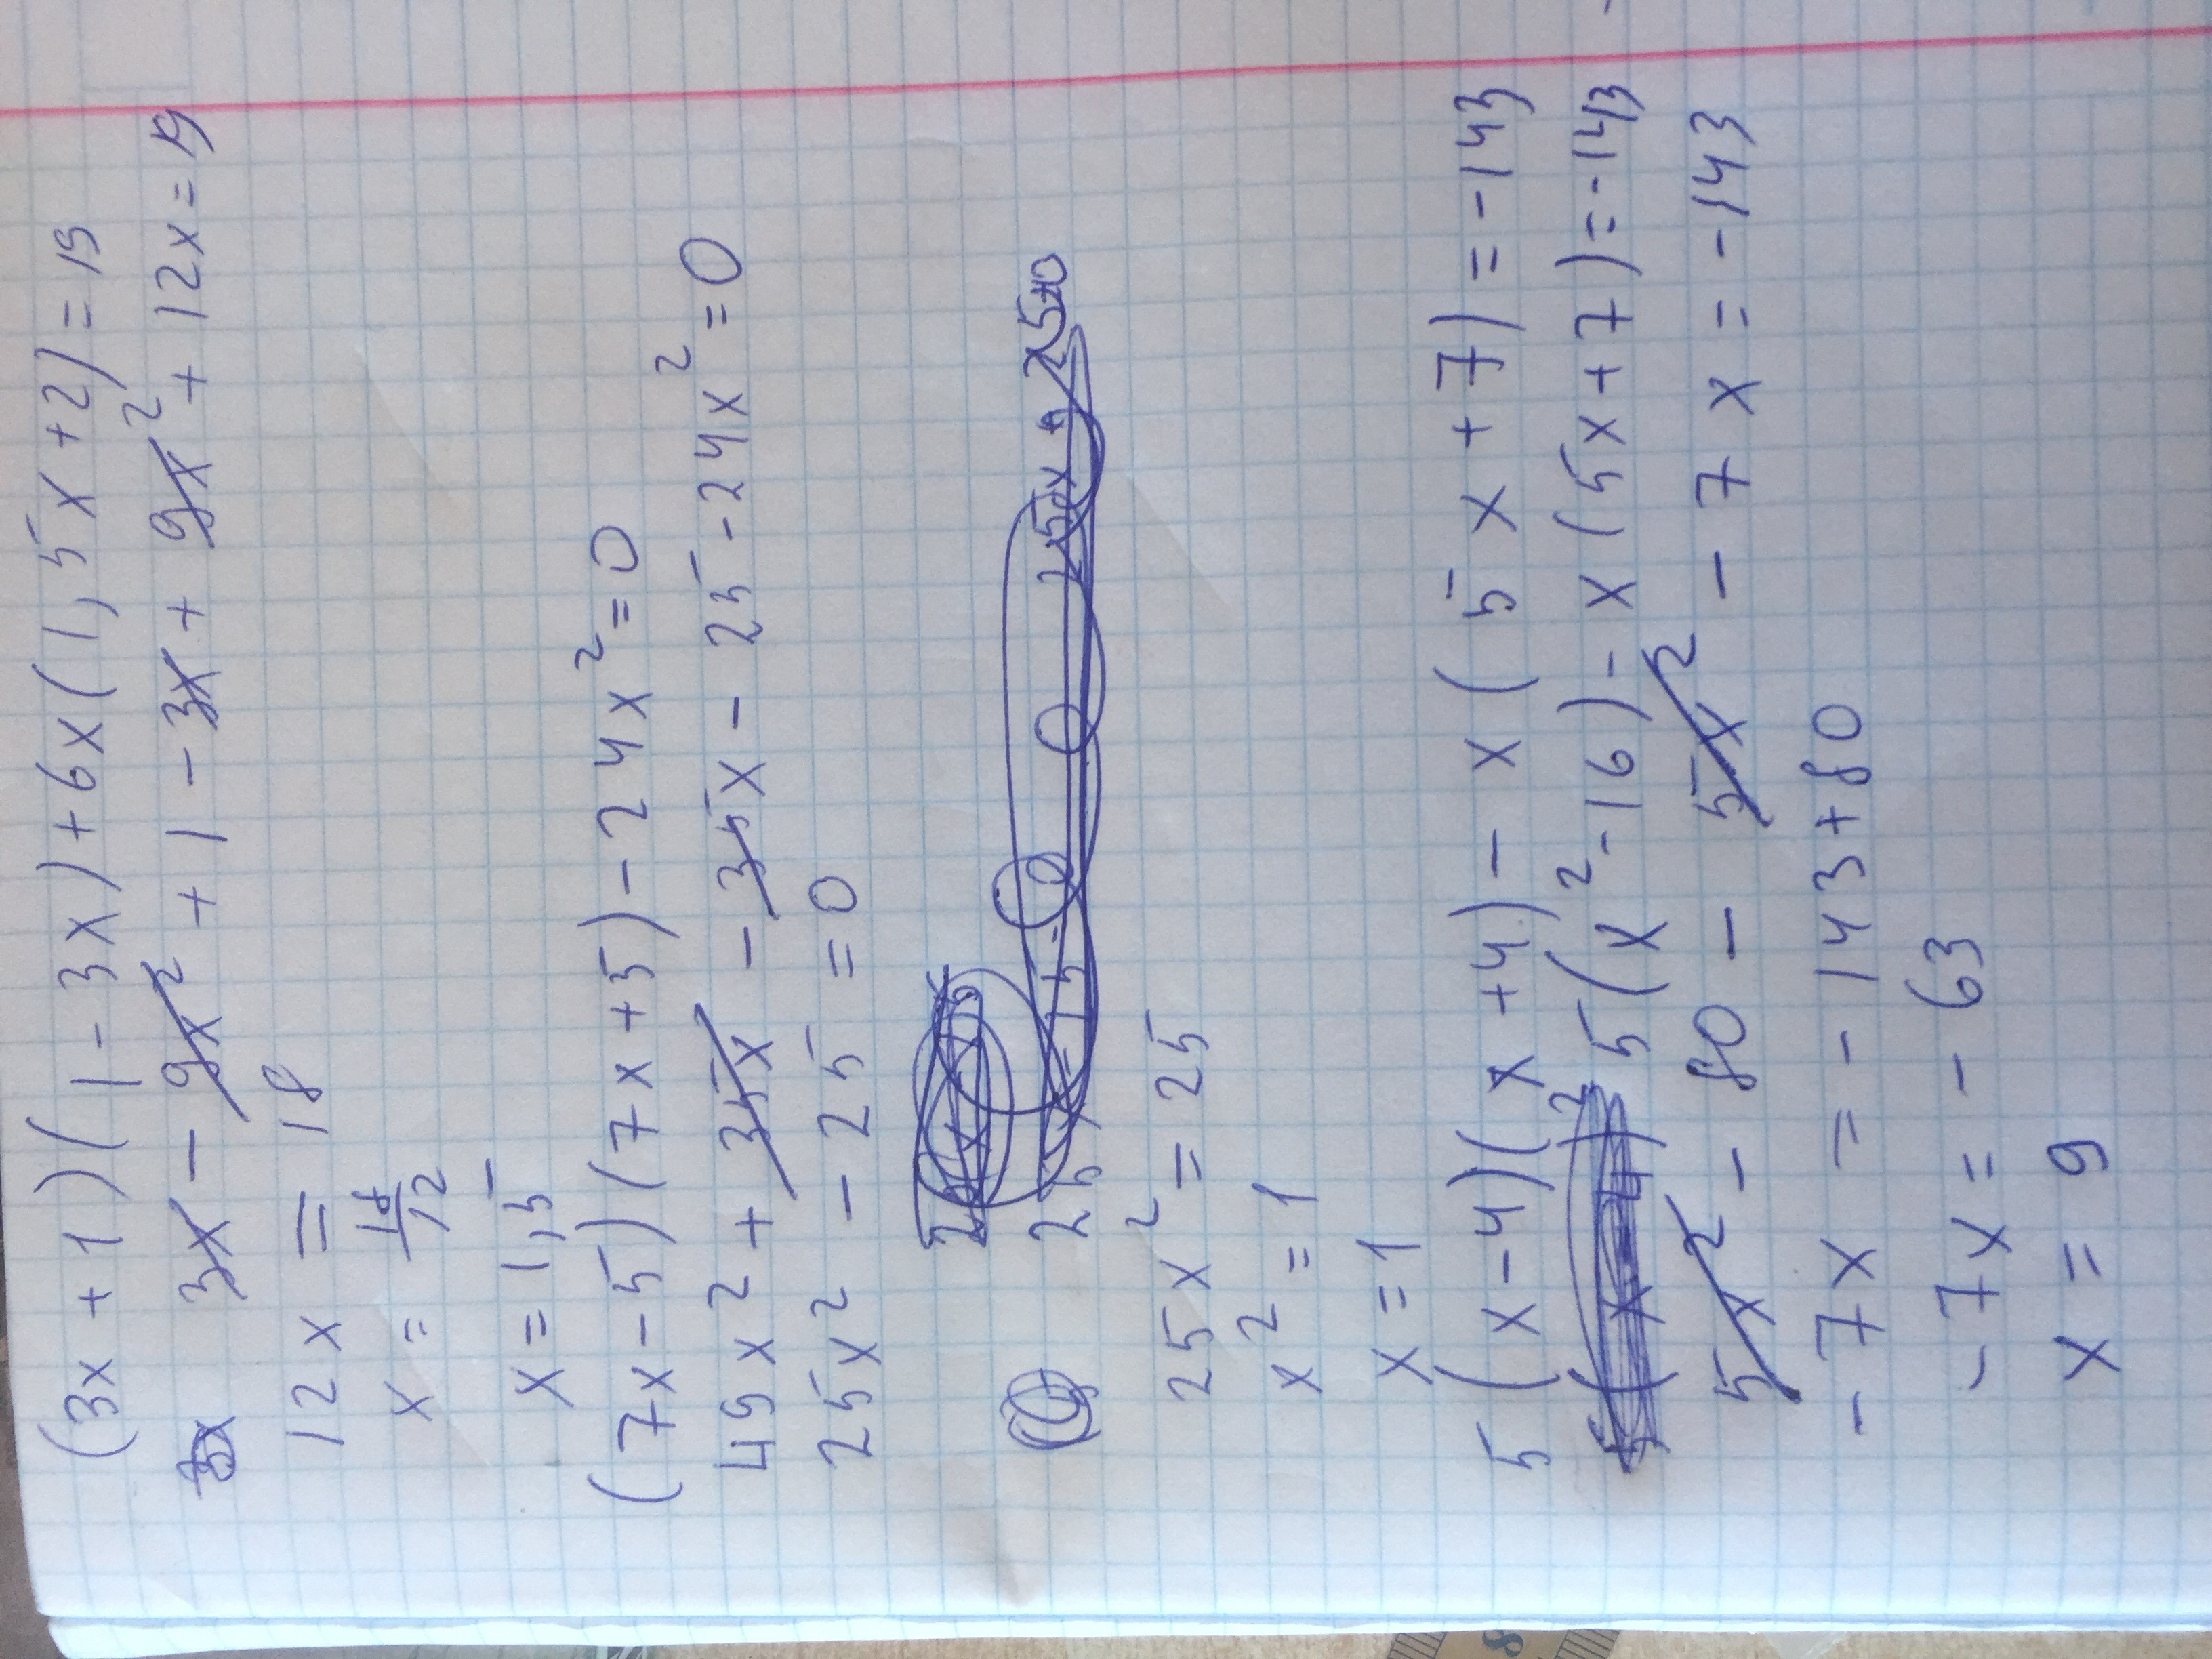 (3x+1)(1-3x)+6x(1,5x+2)=19
3x-9x²+1-3x+9x²+12x=19
12x=18
x=18/12
x=1,5
(7x-5)(7x+5)-24x²=0
49x²+35x-35x-25-24x²=0
25x²-25=0
25x²=25
x²=1
x=1
5(x-4)(x+4)-x(5x+7)=-143
5(x²-16)-x(5x+7)=-143
5x²-80-5x²-7x=-143
-7x=-143+80
-7x=-63
x=9